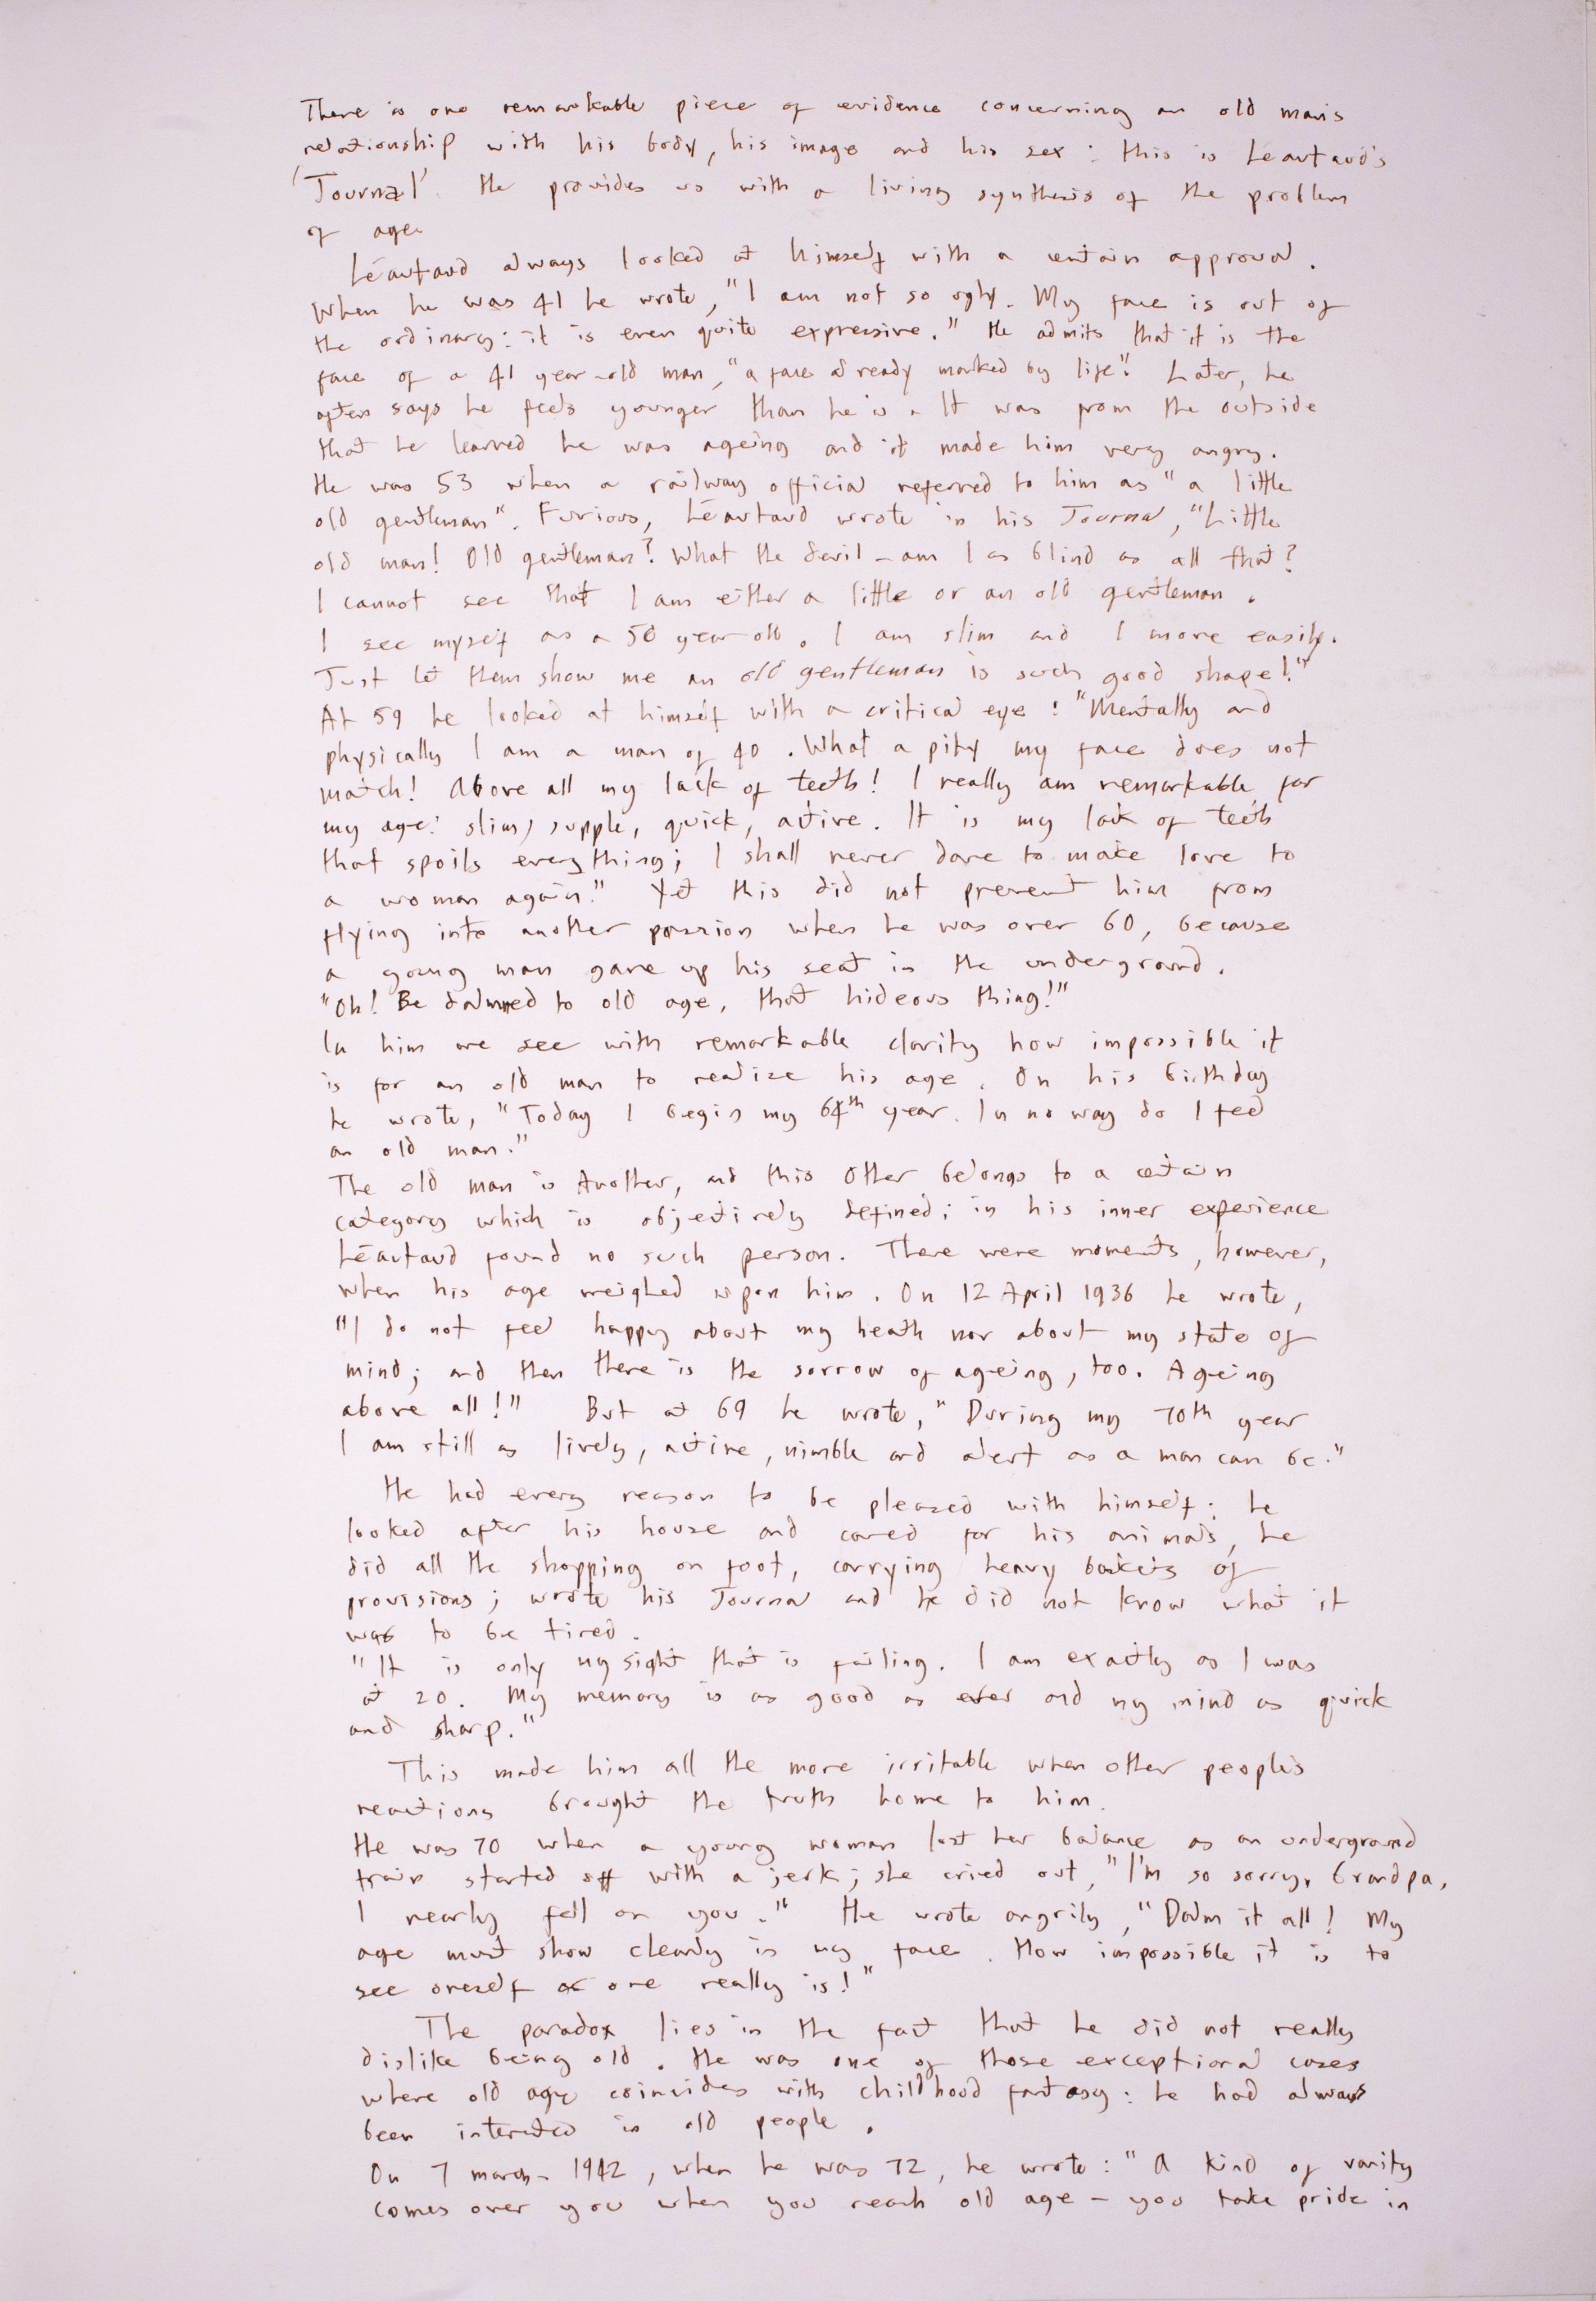 There is one remarkable piece of evidence concerning an old man's
relationship with his body, his image and his sex : this is Léautaud's
'Journal'. He provides us with a living synthesis of the problem
of age.
Léautaud always looked at himself with a certain approval.
When he was 41 he wrote, "I am not so ugly. My face is out of
the ordinary: it is even quite expressive." He admits that it is the
face of a 41 year-old man, "a face already marked by life". Later, he
often says he feels younger than he is. It was from the outside
that he learned he was ageing and it made him very angry.
He was 53 when a railway official referred to him as "a little
old gentleman". Furious, Léautaud wrote in his Journal, "Little
old man! Old gentleman? What the devil - am I as blind as all that?
I cannot see that I am either a little or an old gentleman.
I see myself as a 50 year old. I am slim and I move easily.
Just let them show me an old gentleman is such good shape!"
At 59 he looked at himself with a critical eye : "Mentally and
physically I am a man of 40. What a pity my face does not
match! Above all my lack of teeth! I really am remarkable for
my age: slim, supple, quick, active. It is my lack of teeth
that spoils everything; I shall never dare to make love to
a woman again." Yet this did not prevent him from
flying into another passion when he was over 60, because
a young man gave up his seat in the underground.
"Oh! Be damned to old age, that hideous thing!"
In him we see with remarkable clarity how impossible it
is for an old man to realize his age. On his birthday
he wrote, "Today I begin my 64th year. In no way do I feel
an old man."
The old man is Another, and this Other belongs to a certain
category which is objectively defined; in his inner experience
Léautaud found no such person. There were moments, however,
when his age weighed upon him. On 12 April 1936 he wrote,
"I do not feel happy about my heath nor about my state of
mind; and then there is the sorrow of ageing, too. Ageing
above all!" But at 69 he wrote, "During my 70th year
I am still as lively, active, nimble and alert as a man can be."
He had every reason to be pleased with himself: he
looked after his house and cared for his animals, he
did all the shopping on foot, carrying heavy baskets of
provisions; wrote his Journal and he did not know what it
was to be tired.
"It is only my sight that is failing. I am exactly as I was
at 20. My memory is as good as ever and my mind as quick
and sharp."
This made him all the more irritable when other people's
reactions brought the truth home to him.
He was 70 when a young woman lost her balance as an underground
train started off with a jerk; she cried out, "I'm so sorry, Grandpa,
I nearly fell on you." He wrote angrily, "Damn it all! My
age must show clearly in my face. How impossible it is to
see oneself as one really is!"
The paradox lies in the fact that he did not really
dislike being old. He was one of those exceptional cases
where old age coincides with childhood fantasy: he had always
been interested in old people.
On 7 march - 1942, when he was 72, he wrote: "A kind of vanity
comes over you when you reach old age - you take pride in